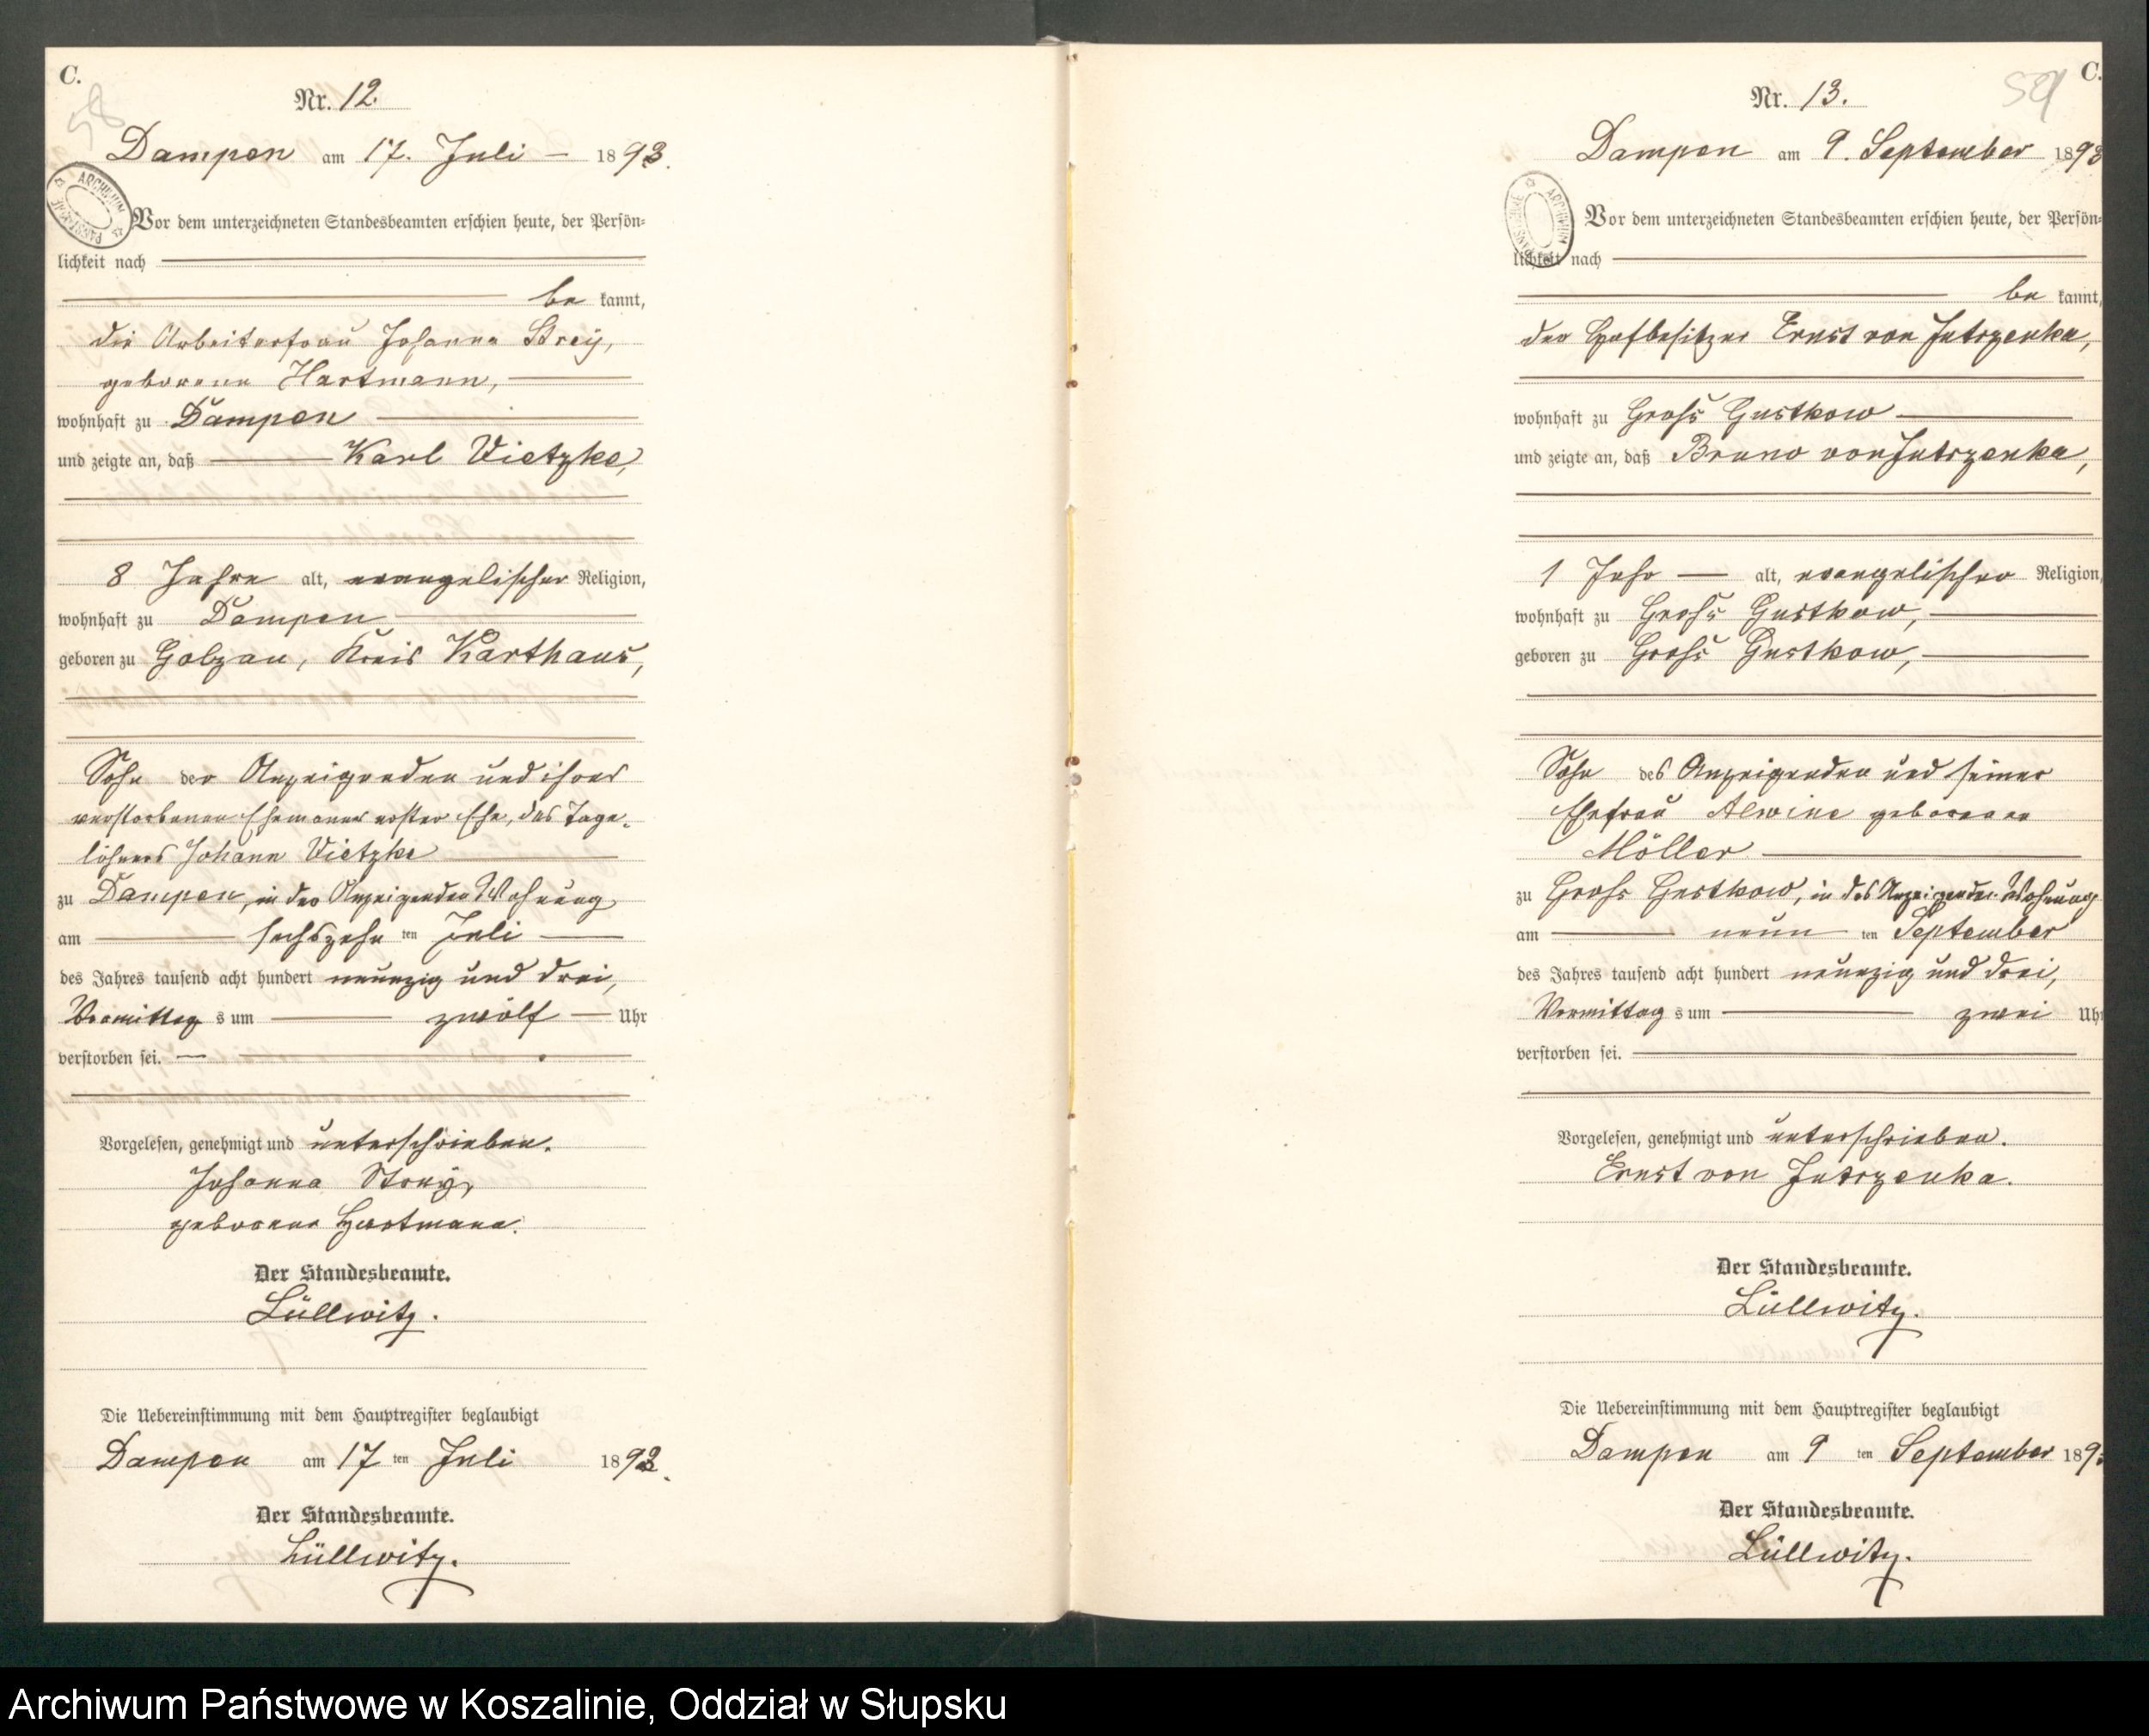 C.
58
Nr. 12.
Dampen am 17. Juli 1893.
ARCHIWUM PAŃSTWOWE
Vor dem unterzeichneten Standesbeamten erschien heute, der Persön-
lichkeit nach
bekannt,
die Arbeiterfrau Johanna Strey,
geborene Hartmann,
wohnhaft zu Dampen
und zeigte an, daß Karl Vietzke,
8 Jahre alt, evangelischer Religion,
wohnhaft zu Dampen
geboren zu Golzau, Kreis Karthaus,
Sohn der Anzeigenden und ihres
verstorbenen Ehemanns erster Ehe, des Tage-
löhners Johann Vietzke
zu Dampen, in der Anzeigenden Wohnung
am sechszehnten Juli
des Jahres tausend acht hundert neunzig und drei,
Vormittags um zwölf Uhr
verstorben sei.
Vorgelesen, genehmigt und unterschrieben.
Johanna Strey,
geborene Hartmann.
Der Standesbeamte.
Lüllwitz.
Die Uebereinstimmung mit dem Hauptregister beglaubigt
Dampen am 17ten Juli 1893.
Der Standesbeamte.
Lüllwitz.
C.
59
Nr. 13.
Dampen am 9. September 1893
ARCHIWUM PAŃSTWOWE
Vor dem unterzeichneten Standesbeamten erschien heute, der Persön-
lichkeit nach
bekannt,
der Hofbesitzer Ernst von Jutrzenka,
wohnhaft zu Groß Gustkow
und zeigte an, daß Bruno von Jutrzenka,
1 Jahr alt, evangelischer Religion,
wohnhaft zu Groß Gustkow,
geboren zu Groß Gustkow,
Sohn des Anzeigenden und seiner
Ehefrau Alwine geborenen
Möller
zu Groß Gustkow, in des Anzeigenden Wohnung
am neunten September
des Jahres tausend acht hundert neunzig und drei,
Vormittags um zwei Uhr
verstorben sei.
Vorgelesen, genehmigt und unterschrieben.
Ernst von Jutrzenka.
Der Standesbeamte.
Lüllwitz.
Die Uebereinstimmung mit dem Hauptregister beglaubigt
Dampen am 9ten September 1893
Der Standesbeamte.
Lüllwitz.
Archiwum Państwowe w Koszalinie, Oddział w Słupsku